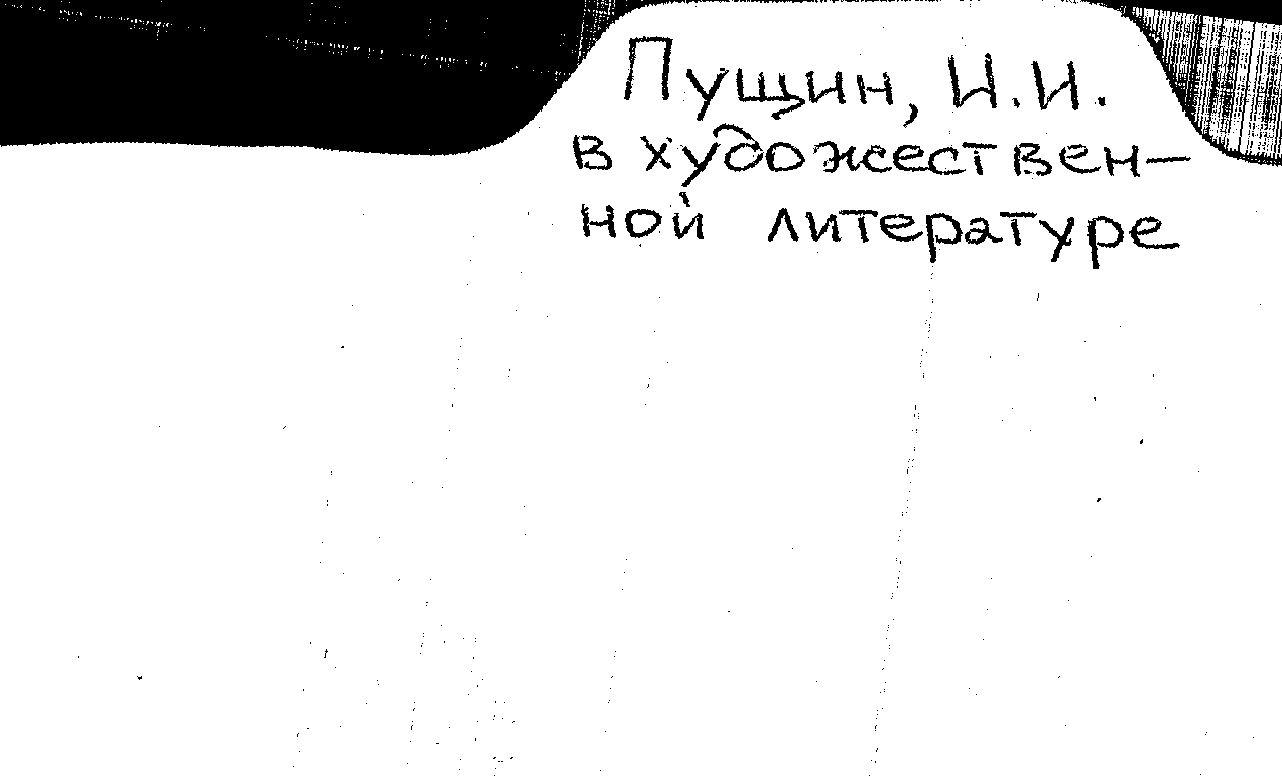 Пущин, И.И.
в художествен-
ной литературе